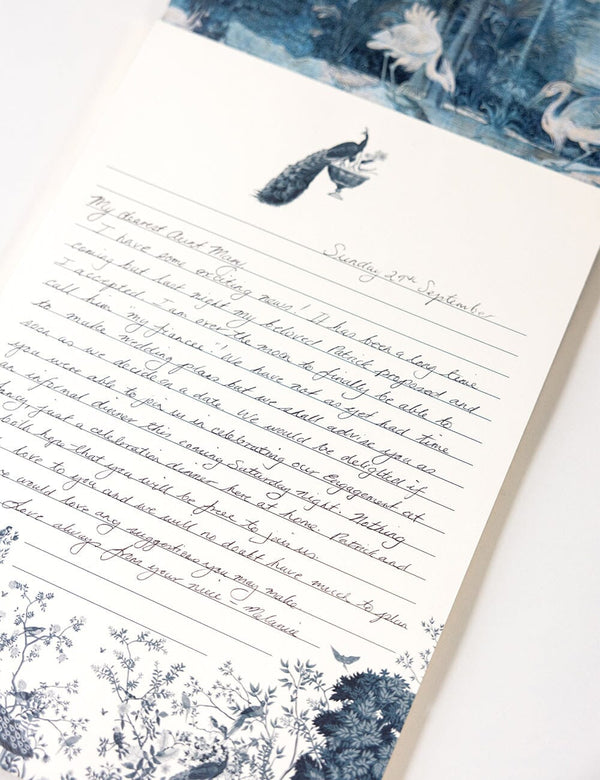 Sunday 29th September
My dearest Aunt Mary
I have some exciting news! It has been a long time
coming but last night my beloved Patrick proposed and
I accepted. I am over the moon to finally be able to
call him 'my fiancee'! We have not as yet had time
to make wedding plans but we shall advise you as
soon as we decide on a date. We would be delighted if
you were able to join us in celebrating our engagement at
an informal dinner this coming Saturday night. Nothing
fancy, just a celebration dinner here at home. Patrick and
both hope that you will be free to join us
love to you and we will no doubt have much to plan
would love any suggestions you may make
Love always from your niece - Melanie